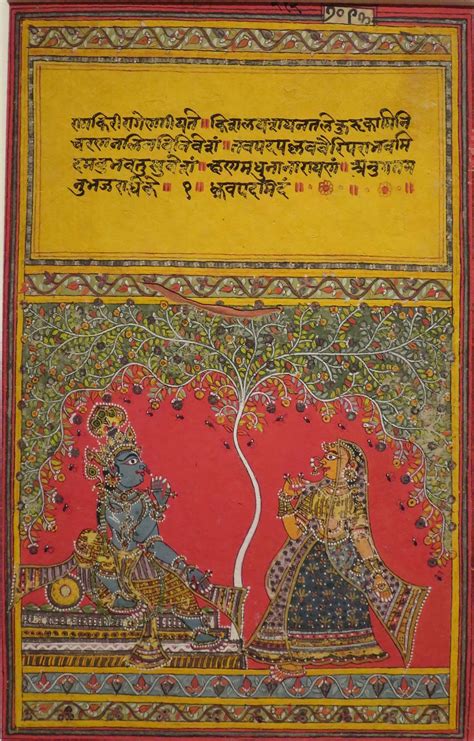 रामकिरीरागेणगीयते॥ किशलयशयनतलेकुरुकामिनि
चरणनलिनविनिवेशं॥ तवपदपल्लववैरिपराभवमि
दमनुभवतुसुवेशं॥ क्षणमधुनानारायणं॥ अनुगतम
नुभजराधिके॥ १ ध्रुवपदमिदं॥